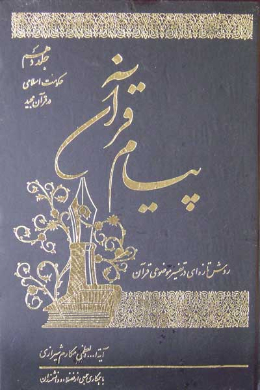 جلد دهم
حکومت اسلامی
در قرآن مجید
پیام قرآن
روش تازه‌ای در تفسیر موضوعی قرآن
آیة‌ا... العظمی مکارم شیرازی
با همکاری جمعی از فضلاء و دانشمندان